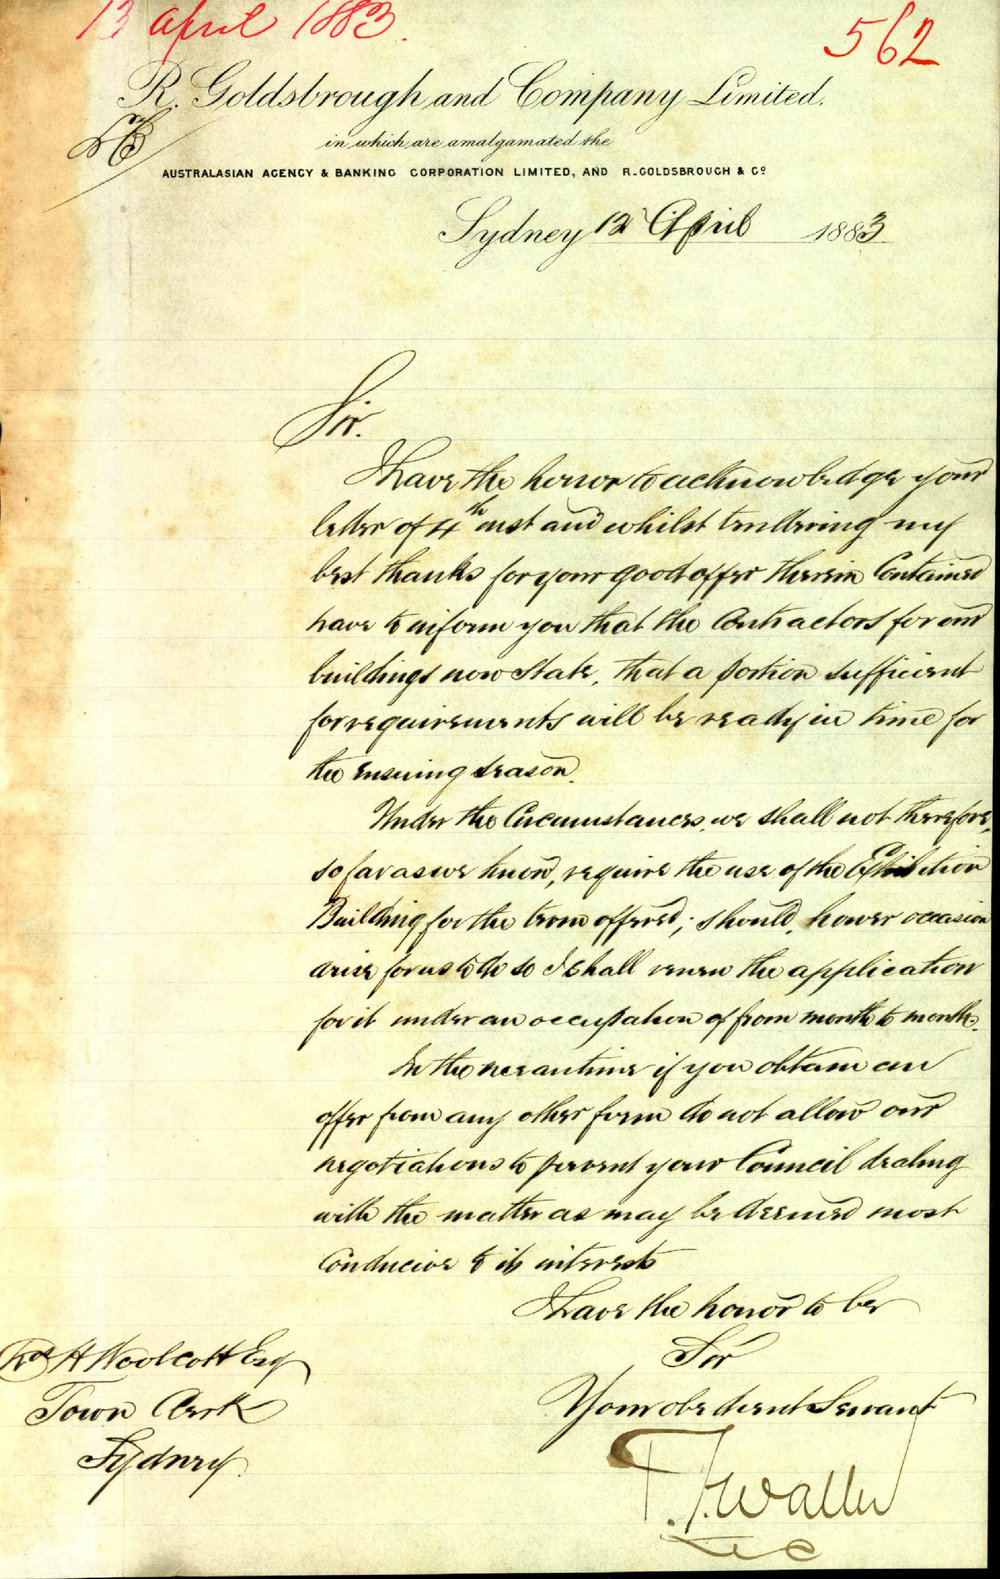 13 April 1883.
562
R. Goldsbrough and Company Limited.
in which are amalgamated the
AUSTRALASIAN AGENCY & BANKING CORPORATION LIMITED, AND R. GOLDSBROUGH & Co
Sydney 12 April 1883
Sir.
I have the honor to acknowledge your
letter of 4th inst and whilst tendering my
best thanks for your good offer therein Contained
have to inform you that the Contractors for our
buildings now state, that a portion sufficient
for requirements will be ready in time for
the ensuing season.
Under the Circumstances, we shall not therefore,
so far as we know, require the use of the Exhibition
Building for the term offered; should, hower occasion
arise for us to do so I shall renew the application
for it under an occupation of from month to month.
In the meantime if you obtain an
offer from any other firm do not allow our
negotiations to prevent your Council dealing
with the matter as may be deemed most
Conducive to its interests
I have the honor to be
Sir
Your obedient Servant
Waller
H Woolcott Esq
Town Clerk
Sydney.